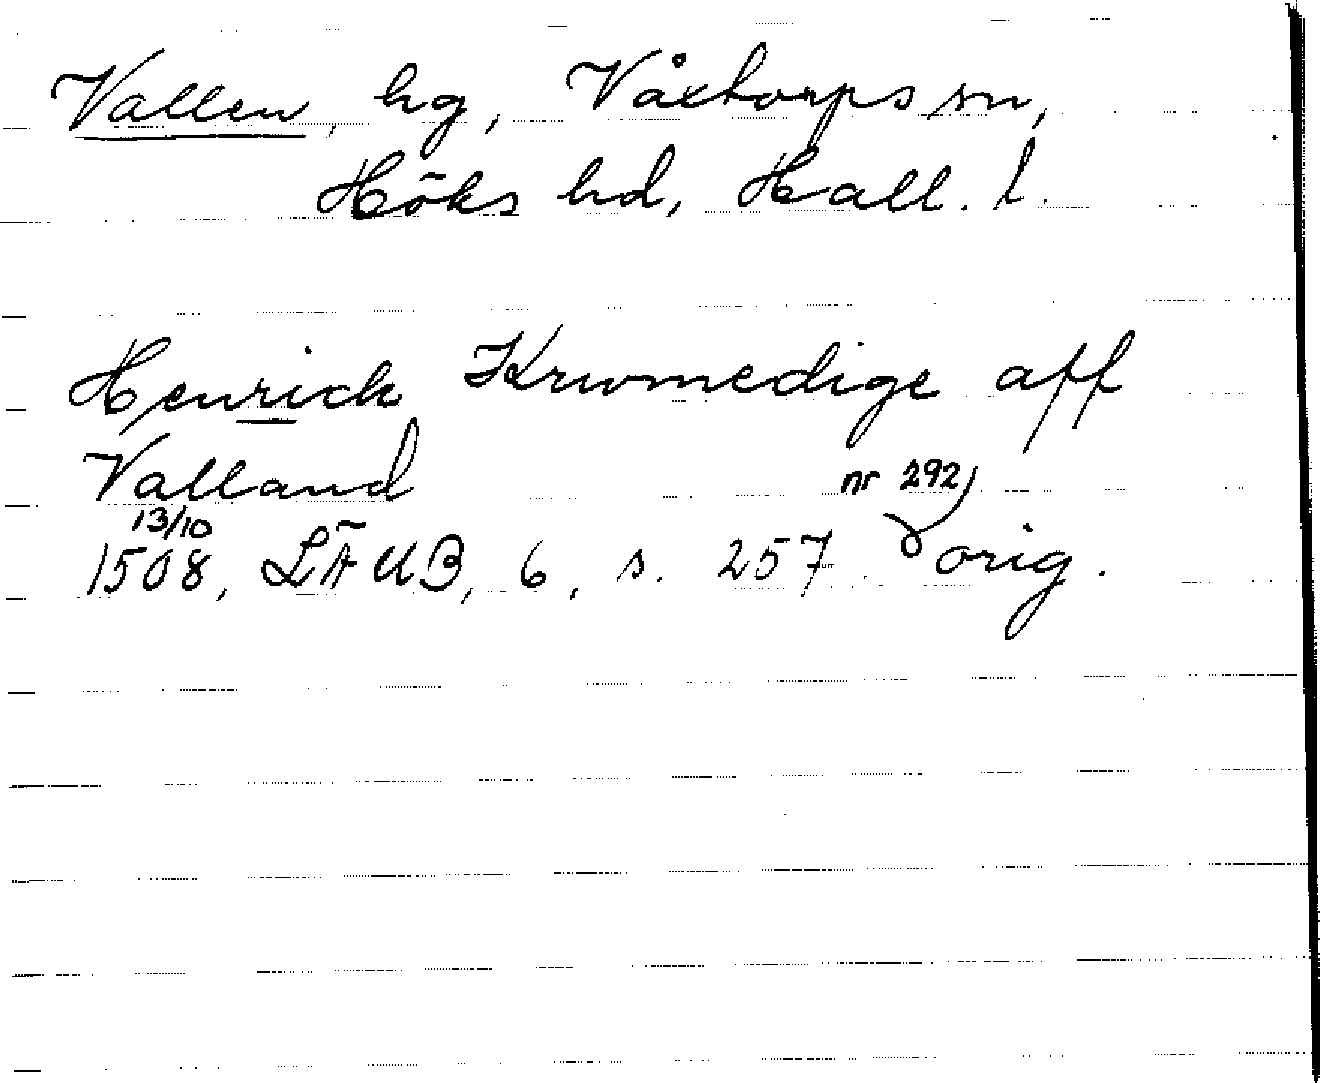 Vallen, hg, Våxtorps sn,
Höks hd, Hall. l.
Henrick Krwmedige aff
Valland
nr 292)
13/10
1508, LÄUB, 6, s. 257 orig.